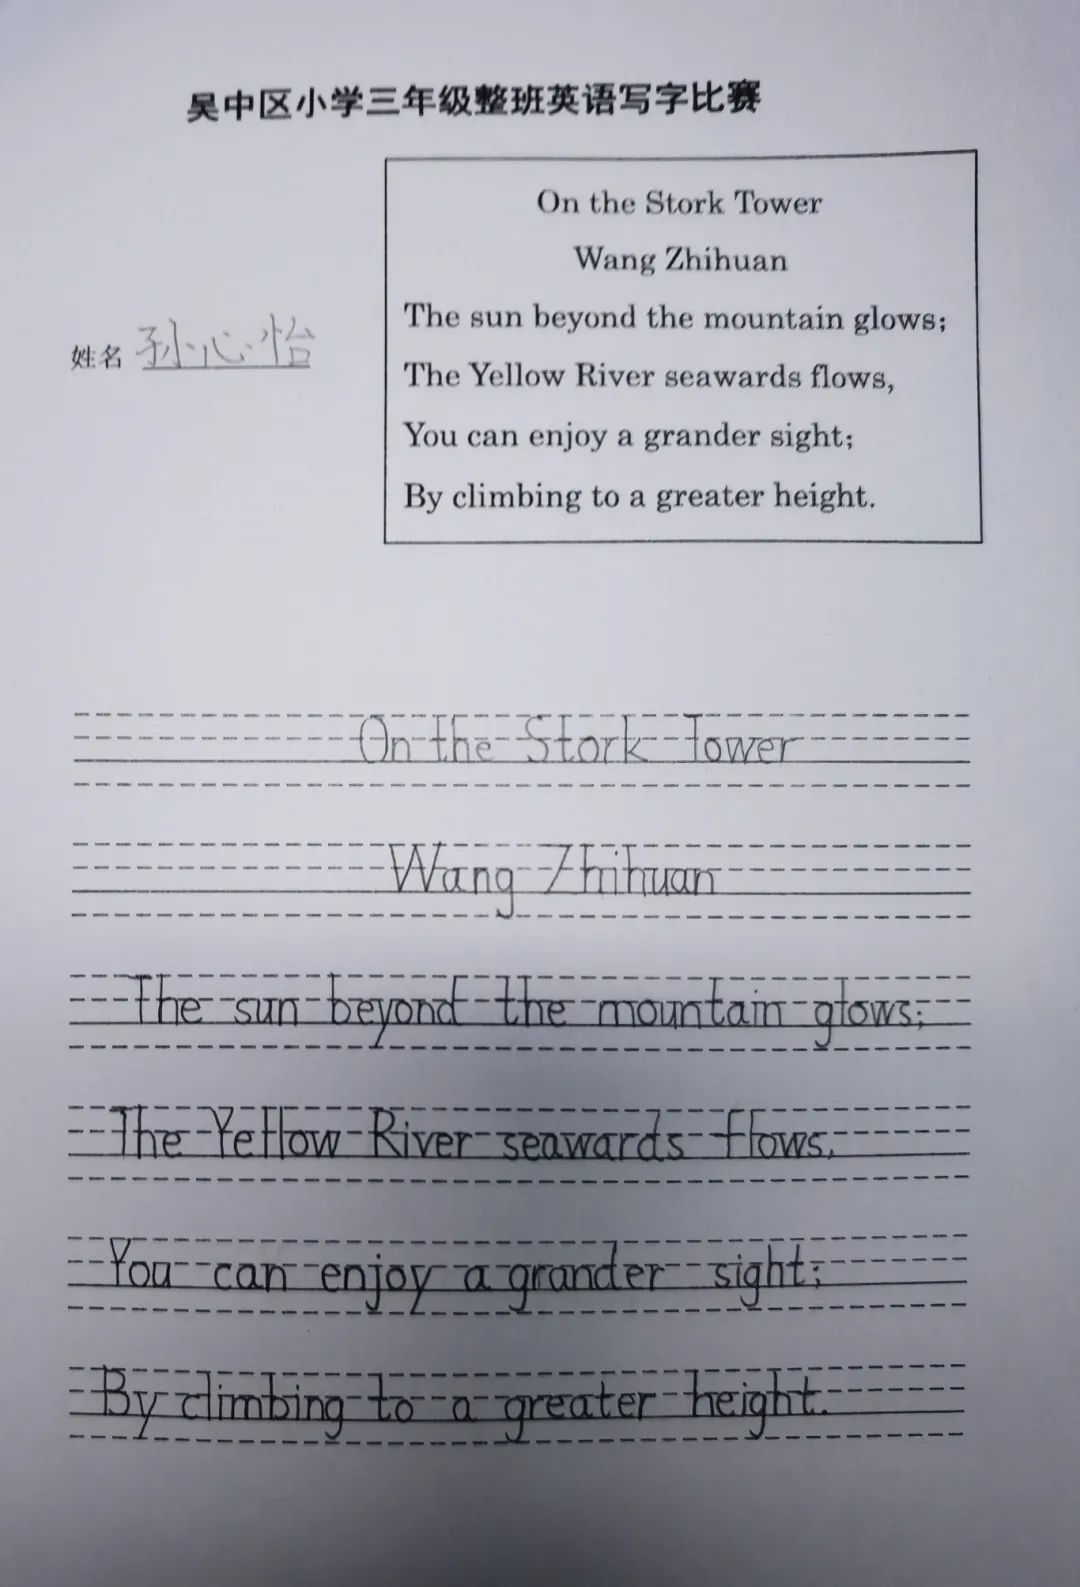 吴中区小学三年级整班英语写字比赛
On the Stork Tower
Wang Zhihuan
The sun beyond the mountain glows;
The Yellow River seawards flows,
You can enjoy a grander sight;
By climbing to a greater height.
姓名 孙心怡
On the Stork Tower
Wang Zhihuan
The sun beyond the mountain glows;
The Yellow River seawards flows,
You can enjoy a grander sight;
By climbing to a greater height.